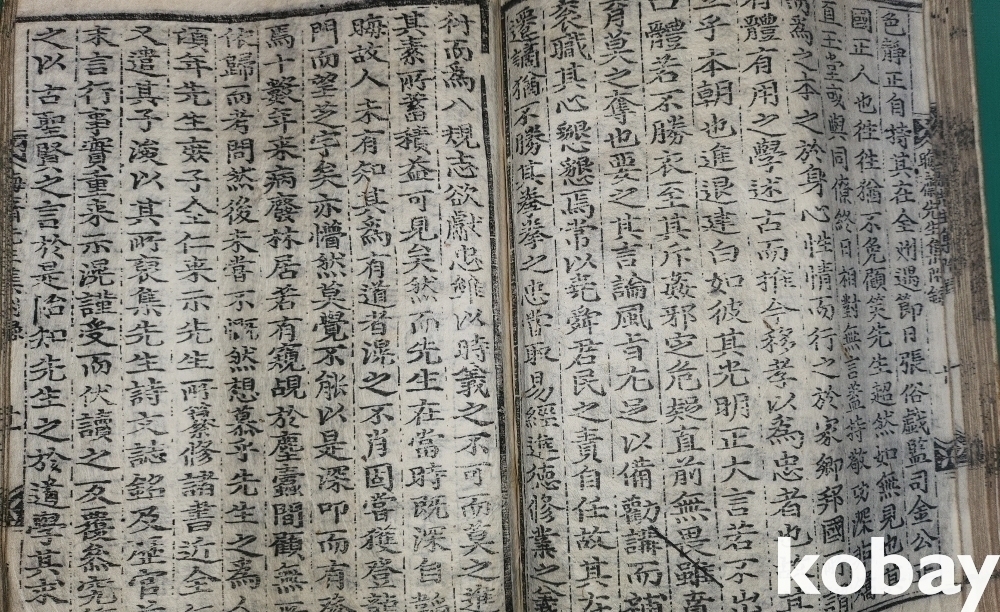 色靜正自持其在全州遇節日張俗戲監司金公
國正人也往往猶不免顧笑先生超然如無見也
直玉堂或與同僚終日相對無言盖持敬功深
而爲之本之於身心性情而行之於家鄉邦國
有體有用之學述古而推今移孝以爲忠者也
立乎本朝也進退建白如彼其光明正大言若不出
口體若不勝衣至其斥姦邪定危疑直前無畏雖賁
育莫之奪也要之其言論風旨尤足以備勸講而補
袞職其心懇懇焉常以堯舜君民之責自任故其在
遷謫猶不勝其拳拳之忠嘗取易經進德修業之義
衍而爲八規志欲獻忠雖以時義之不可而莫之進
其素所蓄積益可見矣然而先生在當時既深自
晦故人未有知其爲有道者滉之不肖固嘗獲登龍
門而望芝宇矣亦懵然莫覺不能以是深叩而有發
焉十數年来病廢林居若有窺覘於塵蠹間顧無
依歸而考問然後未嘗不慨然想慕乎先生之爲人
頃年先生庶子全仁来示先生所纂修諸書近全仁
又遣其子浚以其所裒集先生詩文誌銘及歷官
末言行事實重来示滉謹受而伏讀之反覆叅究
之以古聖賢之言於是始知先生之於道學其求
kobay